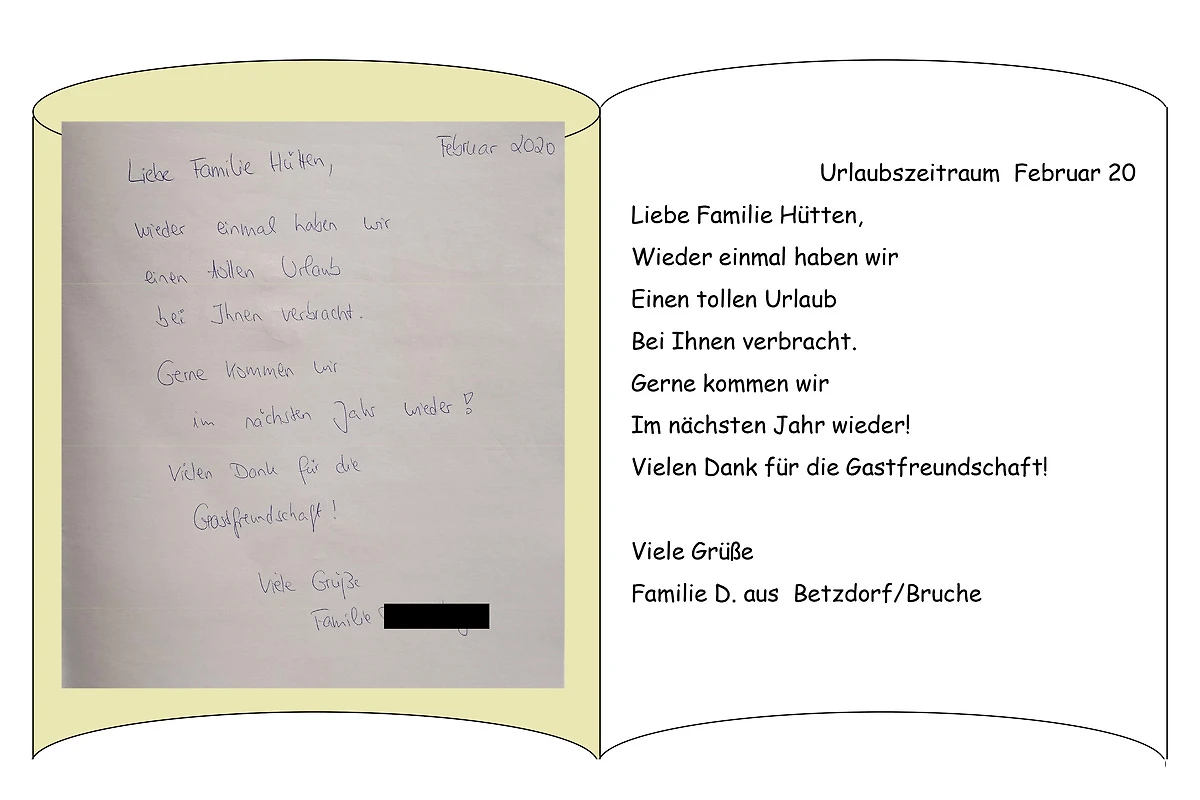 Februar 2020
Liebe Familie Hütten,
wieder einmal haben wir
einen tollen Urlaub
bei Ihnen verbracht.
Gerne kommen wir
im nächsten Jahr wieder!
Vielen Dank für die
Gastfreundschaft!
Viele Grüße
Familie
Urlaubszeitraum Februar 20
Liebe Familie Hütten,
Wieder einmal haben wir
Einen tollen Urlaub
Bei Ihnen verbracht.
Gerne kommen wir
Im nächsten Jahr wieder!
Vielen Dank für die Gastfreundschaft!
Viele Grüße
Familie D. aus Betzdorf/Bruche